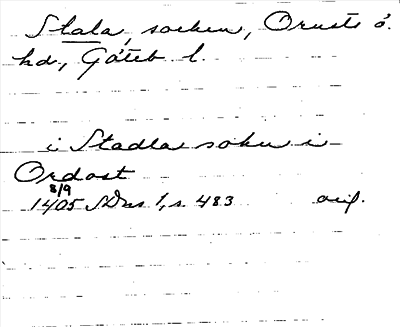 Stala, socken, Orusts ö.
hd., Göteb l.
i Stadla sokn i
Ordost
8/9
1405 SDns 1, s. 483 orig.